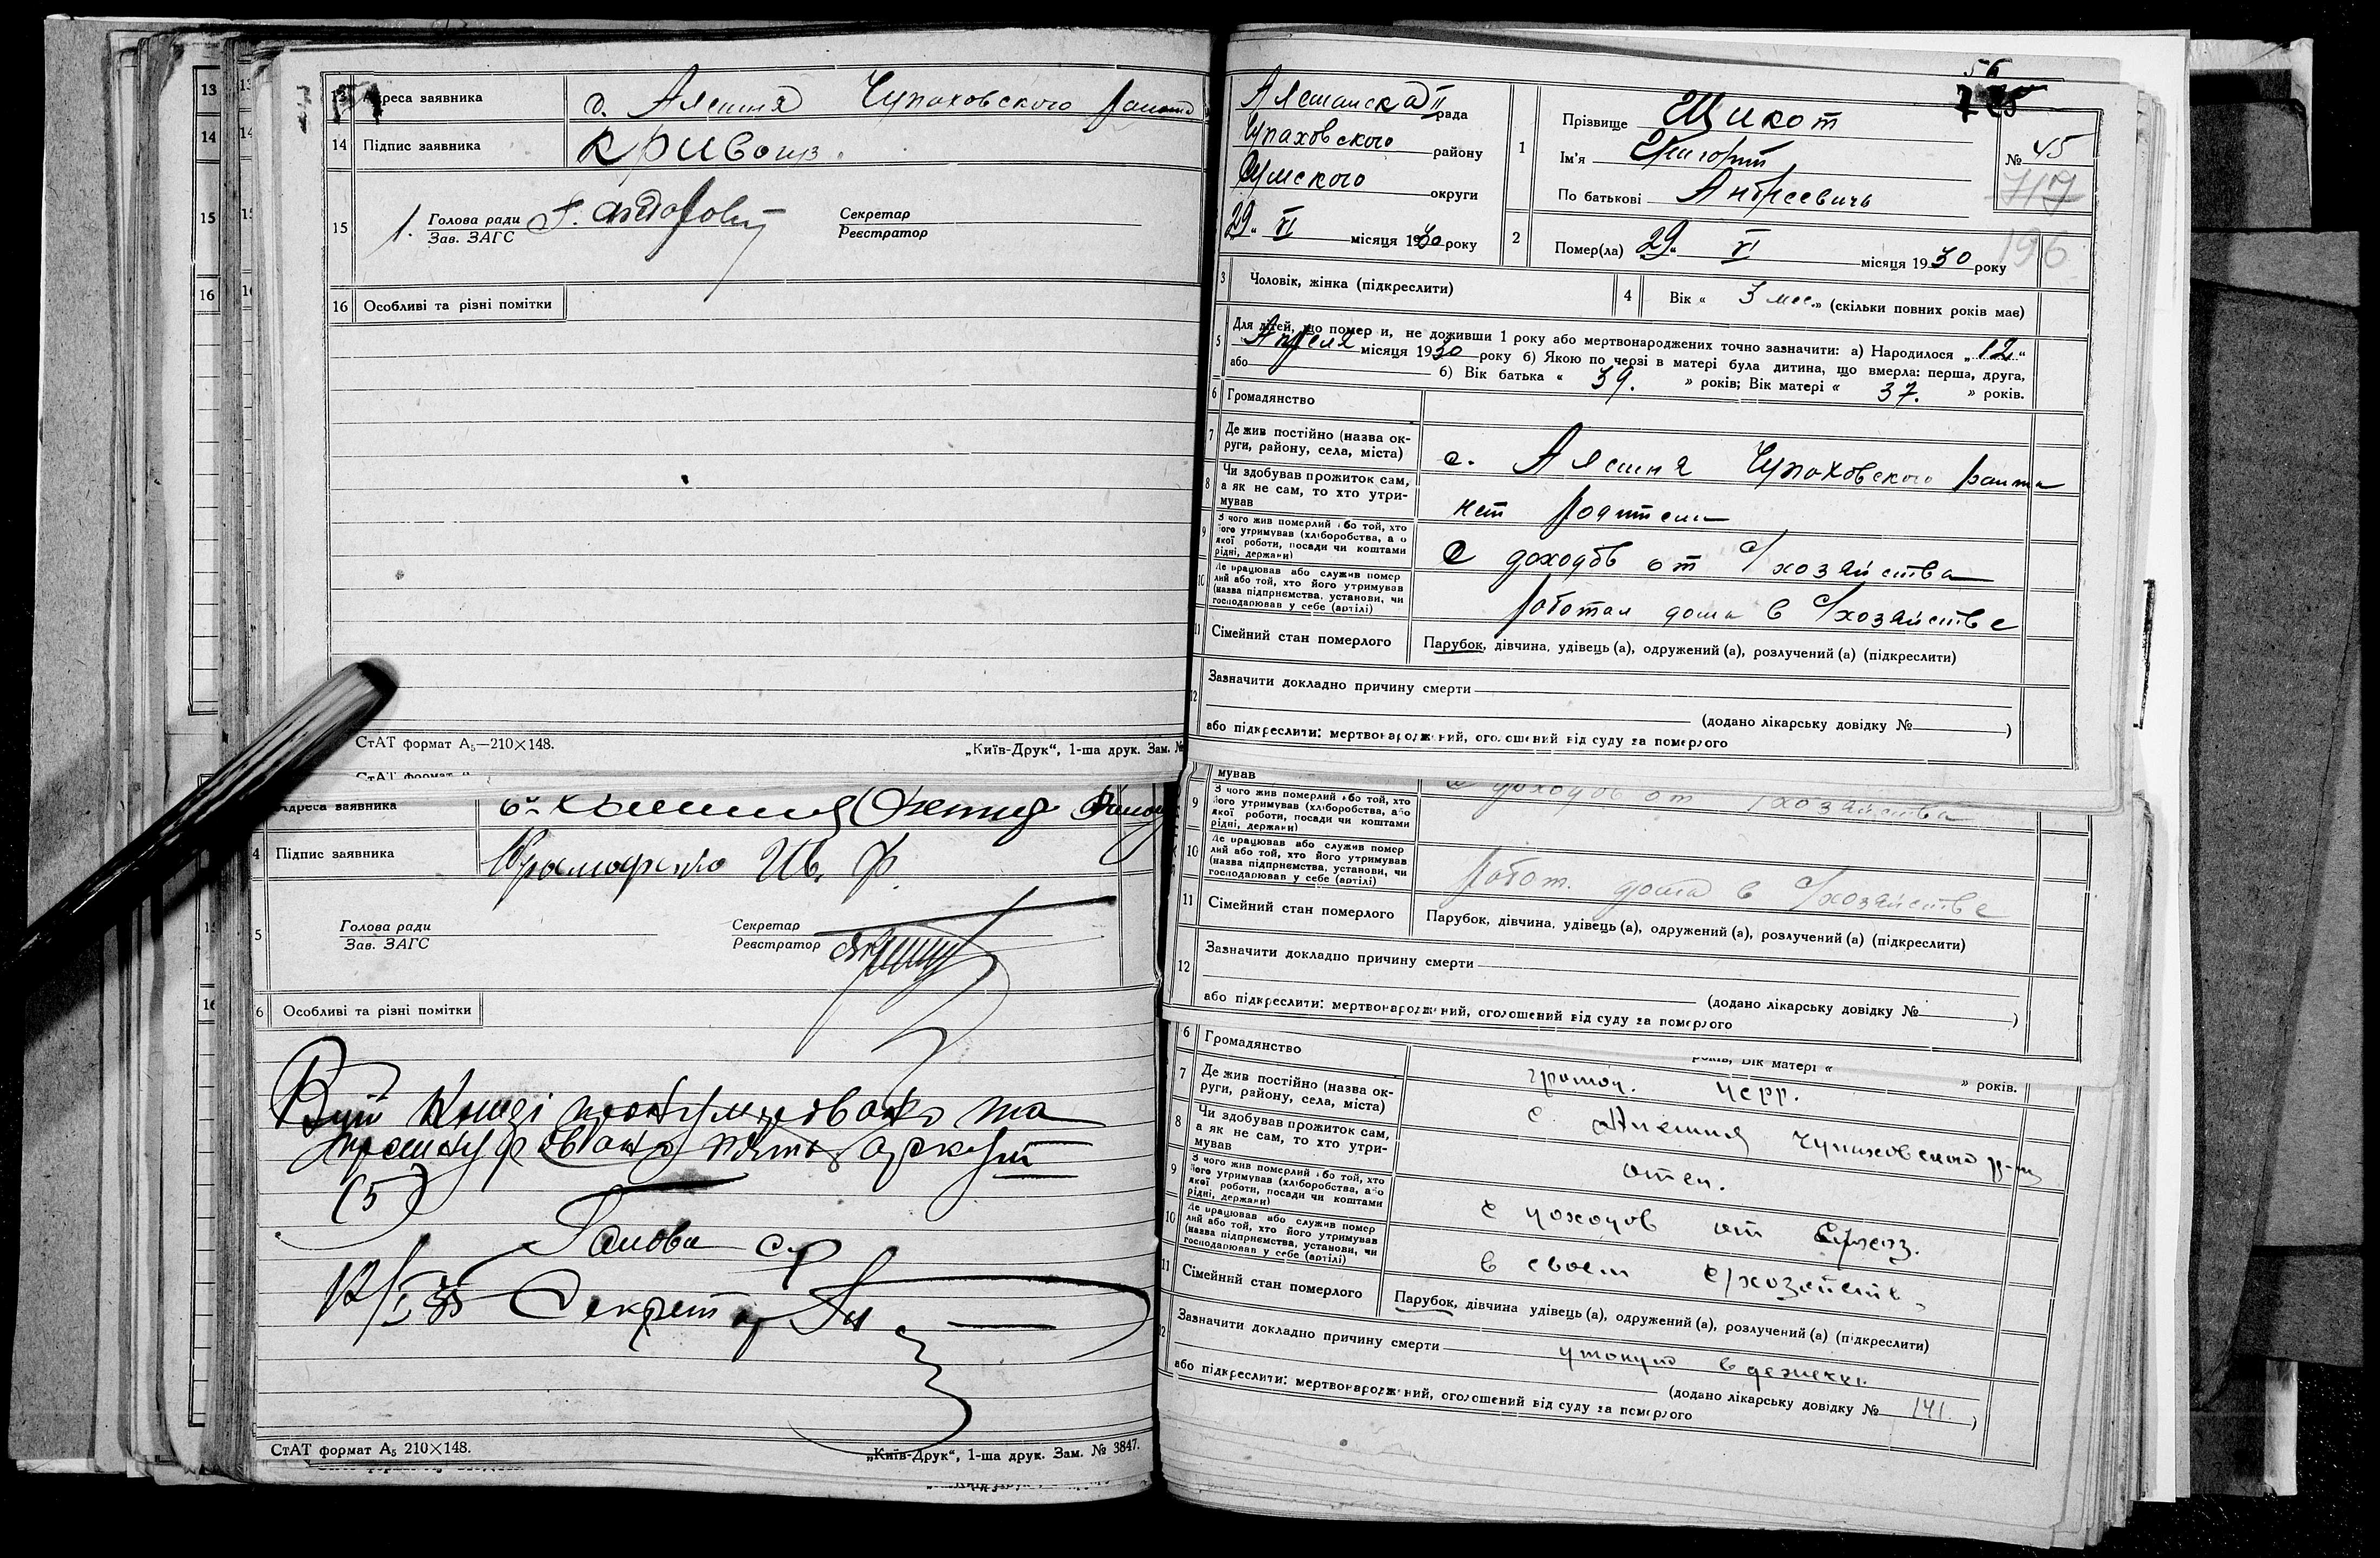 13
14
15
16
Адреса заявника с. Алешня Чупаховского района
14 Підпис заявника Кривошз
15 1. Голова ради
Зав. ЗАГС
Секретар
Реєстратор
16 Особливі та різні помітки
СтАТ формат А₅—210×148.
„Київ-Друк“, 1-ша друк. Зам. №
Адреса заявника
4 Підпис заявника Ив. Ф.
5 Голова ради
Зав. ЗАГС
Секретар
Реєстратор
6 Особливі та різні помітки
Всій книзі пронумеровано та
прошнуровано пять аркушів
(5)
Голова с/р
Секретар
СтАТ формат А₅ 210×148.
„Київ-Друк“, 1-ша друк. Зам. № 3847.
56
Алешанская II рада
Чупаховского району
Сумского округи
„29“ VI місяця 1930 року
1 Прізвище Щикот
Ім'я Григорий
По батькові Андреевичь
№ 45
717
196
2 Помер(ла) „29“ VI місяця 1930 року
3 Чоловік, жінка (підкреслити)
4 Вік « 3 мес. » (скільки повних років має)
5 Для дітей, що померли, не доживши 1 року або мертвонароджених точно зазначити: а) Народилося „12“
Апреля місяця 1930 року б) Якою по черзі в матері була дитина, що вмерла: перша, друга,
або б) Вік батька « 39. » років; Вік матері « 37. » років.
6 Громадянство
7 Де жив постійно (назва округи, району, села, міста) с. Алешня Чупаховского района
8 Чи здобував прожиток сам, а як не сам, то хто утримував нет родители
9 З чого жив померлий або той, хто його утримував (хліборобства, або якої роботи, посади чи коштами рідні, держави) С доходов от с/хозяйства
10 Де працював або служив помер лий або той, хто його утримував (назва підприємства, установи, чи господарював у себе (артілі) работал дома в с/хозяйстве
11 Сімейний стан померлого Парубок, дівчина, удівець (а), одружений (а), розлучений (а) (підкреслити)
12 Зазначити докладно причину смерти
(додано лікарську довідку № )
або підкреслити: мертвонароджений, оголошений від суду за померлого
мував
9 З чого жив померлий або той, хто його утримував (хліборобства, або якої роботи, посади чи коштами рідні, держави) С доходов от с/хозяйства
10 Де працював або служив помер лий або той, хто його утримував (назва підприємства, установи, чи господарював у себе (артілі) работ. дома в с/хозяйстве
11 Сімейний стан померлого Парубок, дівчина, удівець (а), одружений (а), розлучений (а) (підкреслити)
12 Зазначити докладно причину смерти
(додано лікарську довідку № )
або підкреслити: мертвонароджений, оголошений від суду за померлого
років; Вік матері « » років.
6 Громадянство
7 Де жив постійно (назва округи, району, села, міста) с. Алешня Чупаховского р-на
8 Чи здобував прожиток сам, а як не сам, то хто утримував отец.
9 З чого жив померлий або той, хто його утримував (хліборобства, або якої роботи, посади чи коштами рідні, держави) с доходов от с/хоз.
10 Де працював або служив помер лий або той, хто його утримував (назва підприємства, установи, чи господарював у себе (артілі) в своем с/хозяйстве
11 Сімейний стан померлого Парубок, дівчина удівець (а), одружений (а), розлучений (а) (підкреслити)
12 Зазначити докладно причину смерти утонул в
(додано лікарську довідку № 141. )
або підкреслити: мертвонароджений, оголошений від суду за померлого